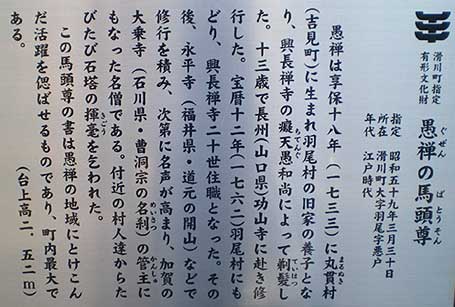 滑川町指定
有形文化財
愚禅の馬頭尊
ぐぜん　ばとうそん
指定　昭和五十九年三月三十日
所在　滑川町大字羽尾字悪戸
年代　江戸時代
愚禅は享保十八年（一七三三）に丸貫村
まるぬき
（吉見町）に生まれ羽尾村の旧家の養子とな
り、興長禅寺の癡天愚和尚によって剃髪し
ちてんぐ　ていはつ
た。十三歳で長州（山口県）功山寺に赴き修
行した。宝暦十二年（一七六二）羽尾村にも
どり、興長禅寺二十世住職となった。その
後、永平寺（福井県・道元の開山）などで
修行を積み、次第に名声が高まり、加賀の
大乗寺（石川県・曹洞宗の名刹）の管主に
めいさつ　かんす
もなった名僧である。付近の村人達からた
びたび石塔の揮毫を乞われた。
きごう
この馬頭尊の書は愚禅の地域にとけこん
だ活躍を偲ばせるものであり、町内最大で
ある。
（台上高二、五二m）